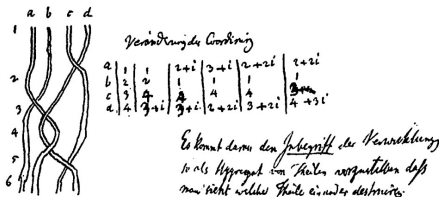 a b c d
1
2
3
4
5
6
Veränderung der Coordinirung
a | 1 | 1 | 2+i | 3+i | 2+2i | 2+2i
b | 2 | 2 | 1 | 1 | 1 | 1
c | 3 | 4 | 4 | 4 | 4
d | 4 | 3+i | 3+i | 2+2i | 3+2i | 4+3i
Es kommt darauf an den Inbegriff der Verwickelung
so als Aggregat von Theilen vorzustellen daß
man sieht welche Theile einander destruiren.